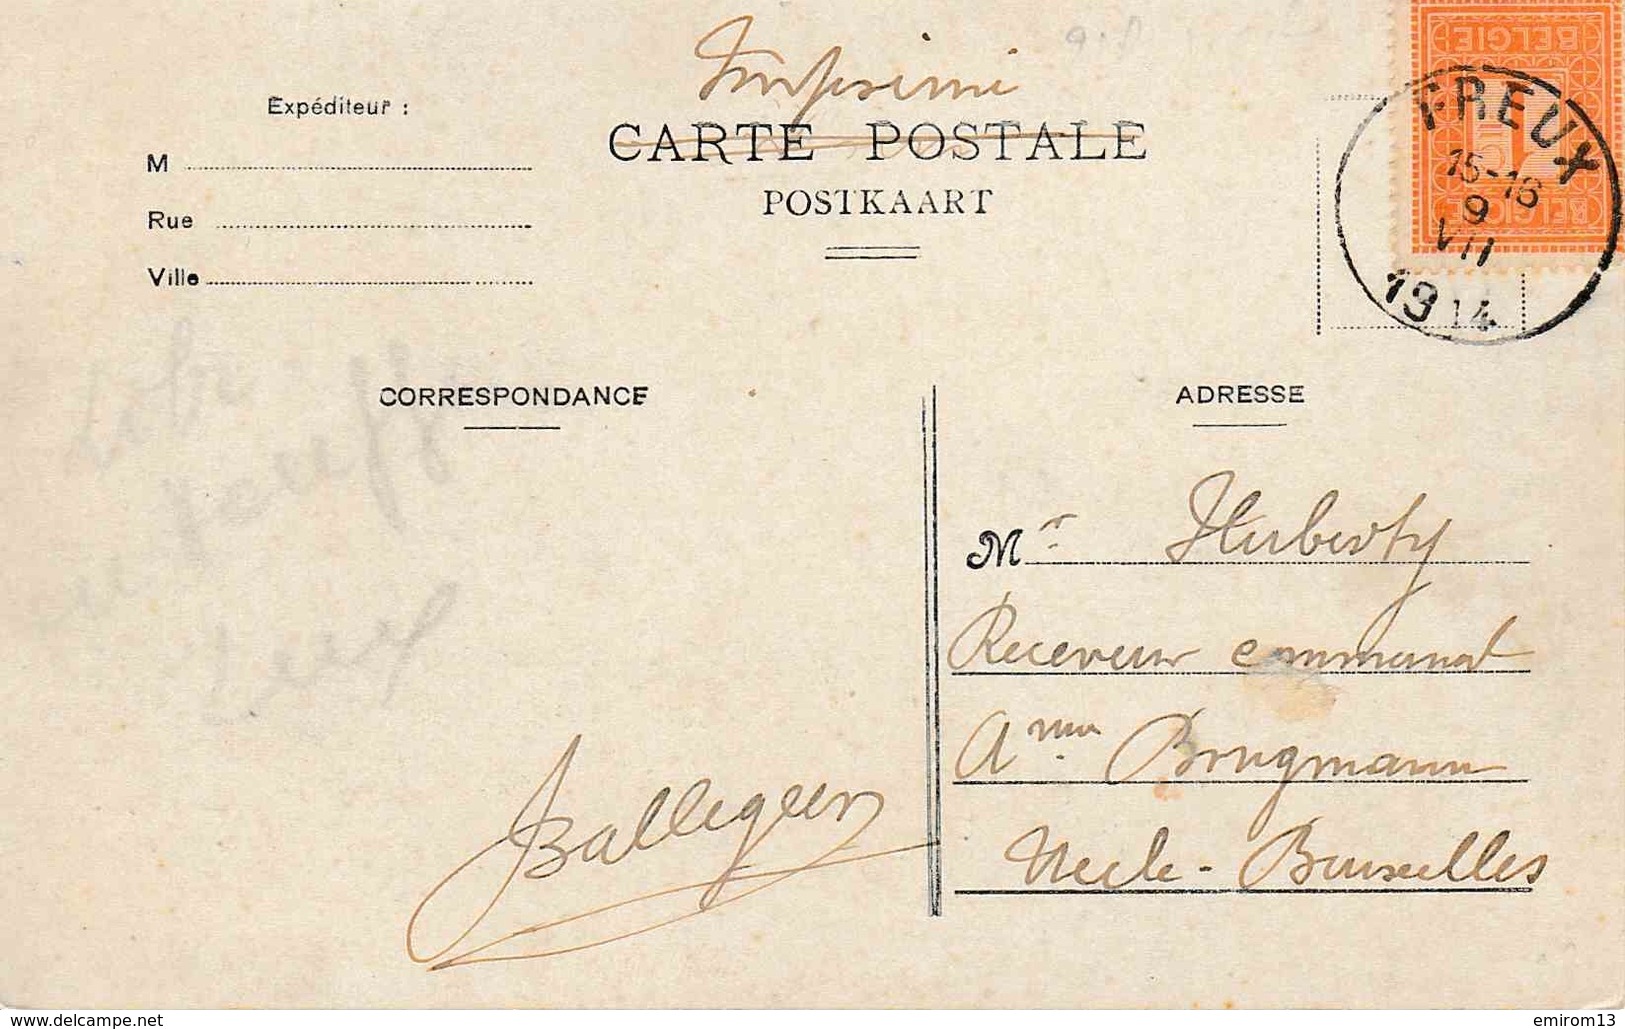 Imprimé
Expéditeur :
CARTE POSTALE
M
POSTKAART
Rue
Ville
BELGIE
1
BELGIQUE
FREUX
15-16
9
VII
1914
CORRESPONDANCE
ADRESSE
Mr. Huberty
Receveur communal
Brugmann
Uccle - Bruxelles
www.delcampe.net
emirom13